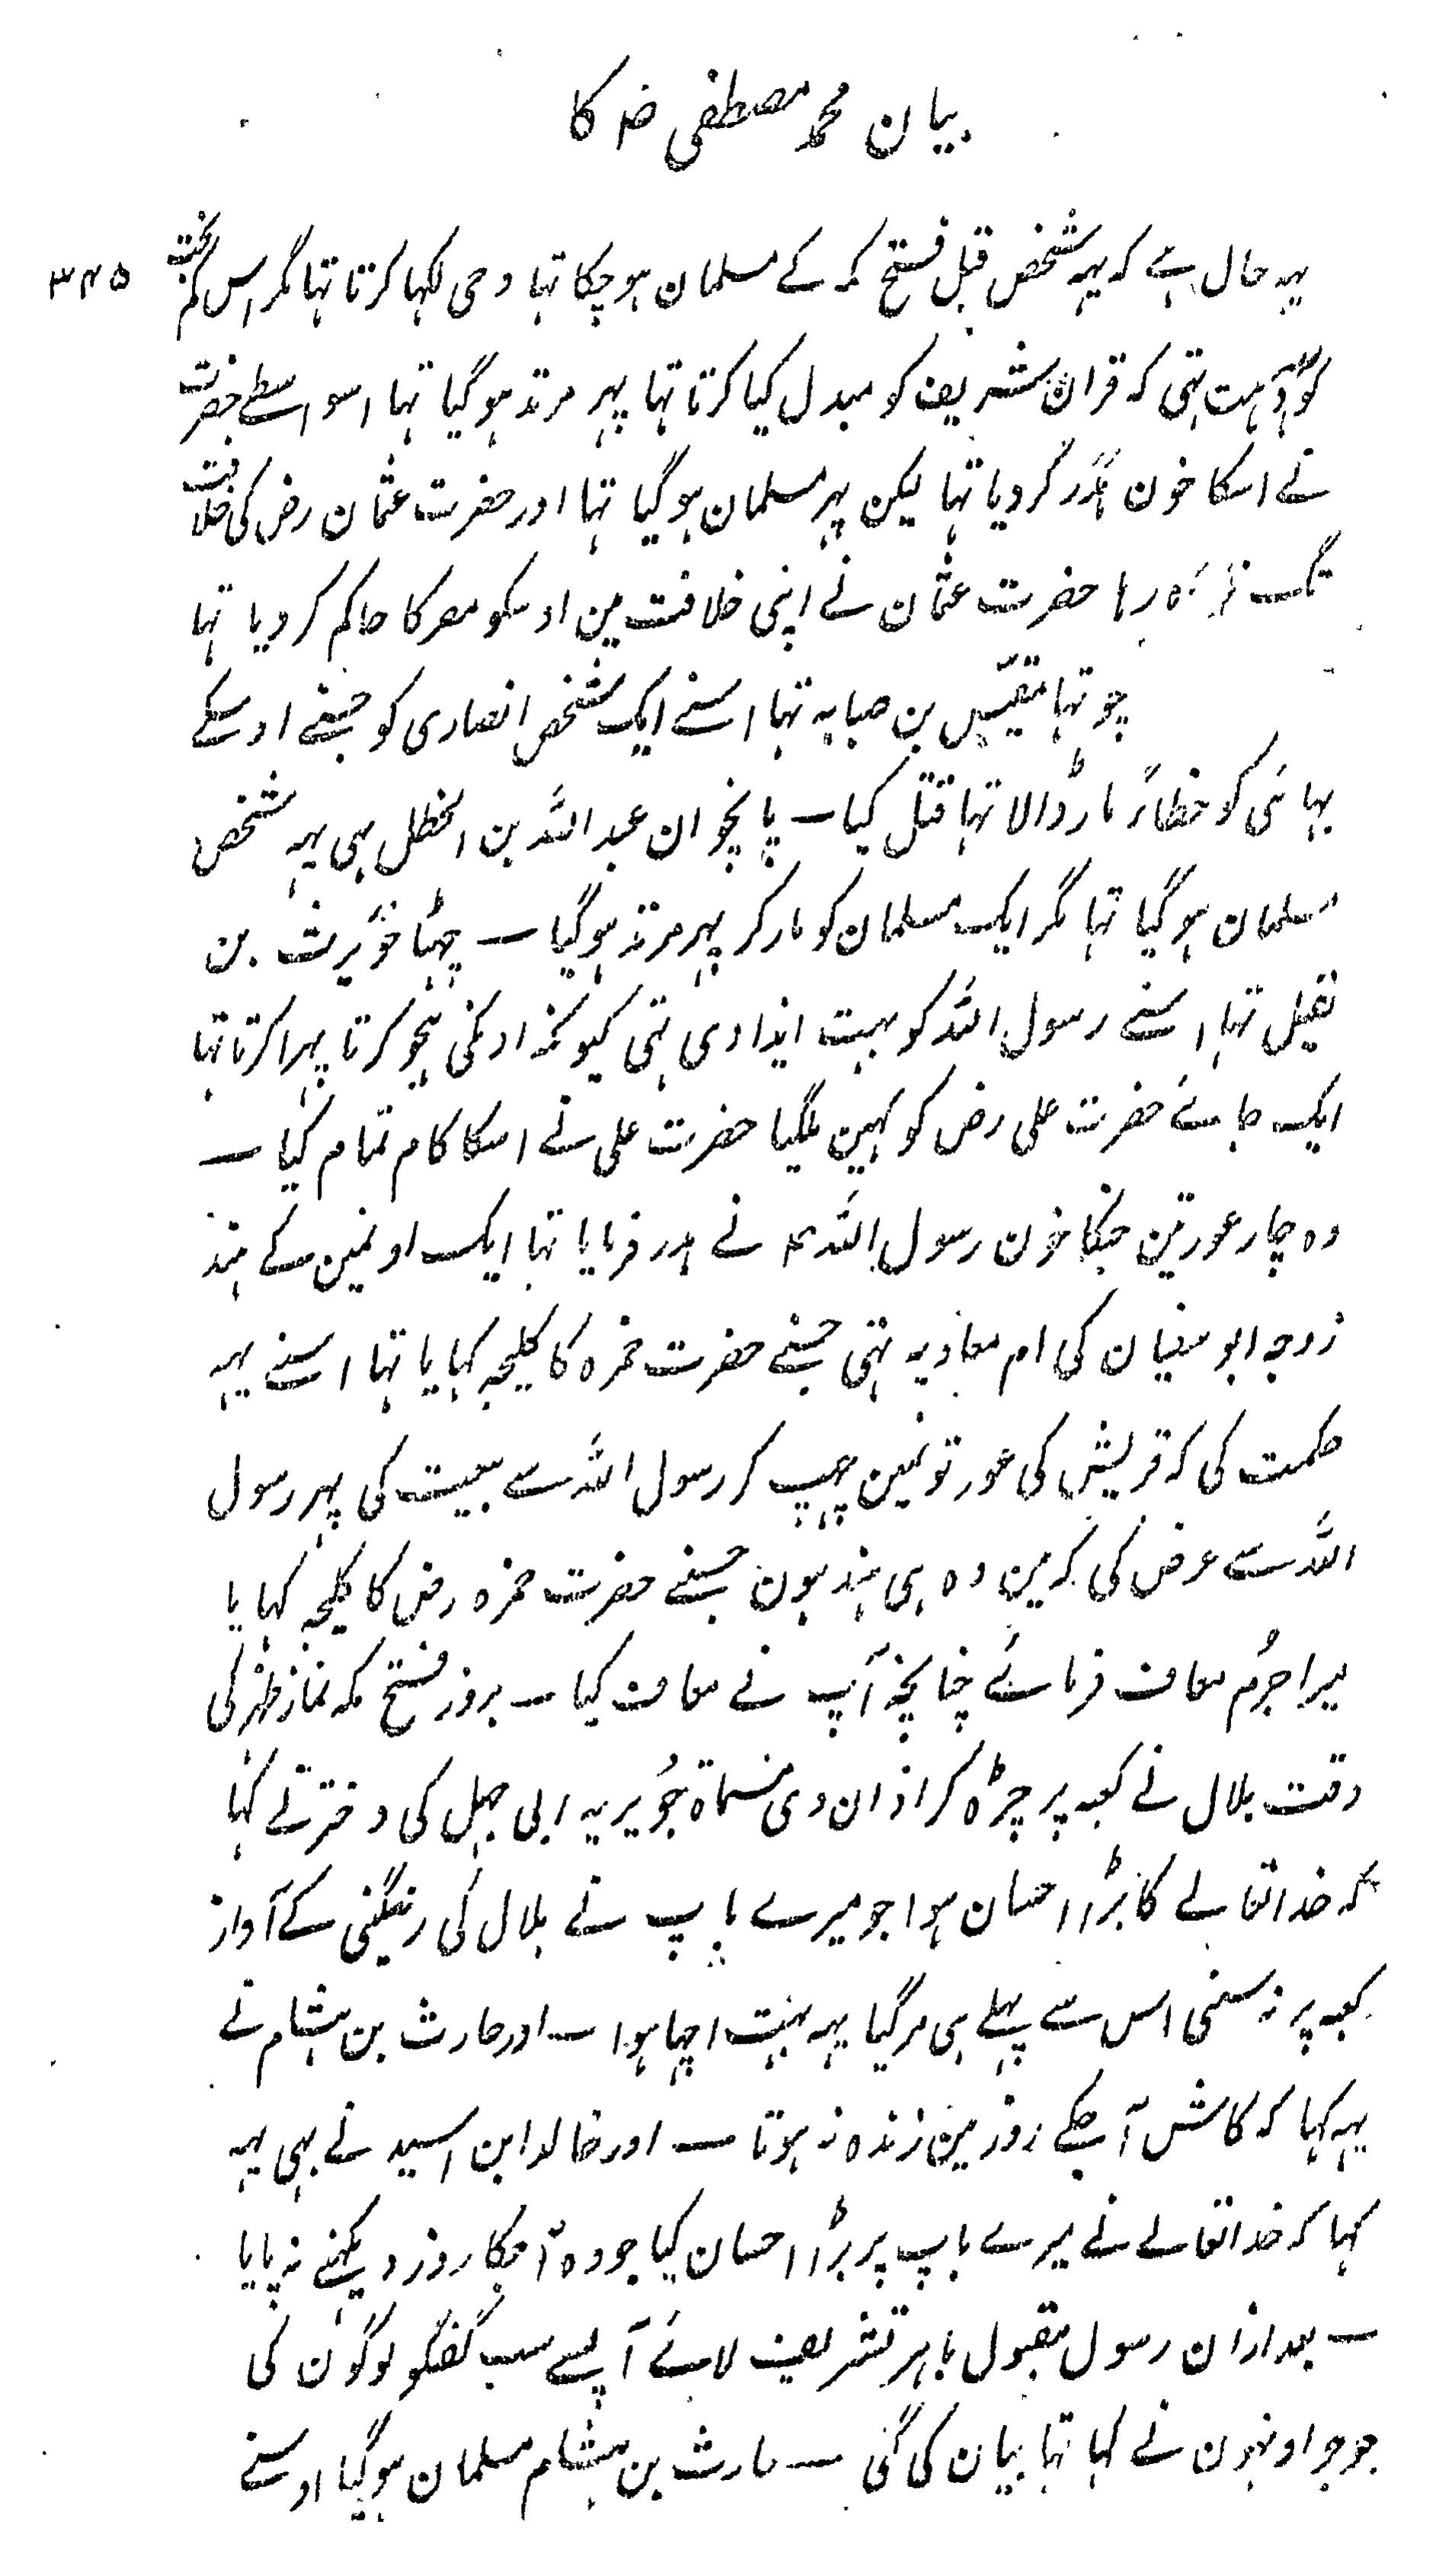 بیان محمد مصطفی صلعم کا
۳۴۵
یہہ حال ہے کہ یہہ شخص قبل فستح مکہ کے مسلمان ہو چکا تہا وحی لکہا کرتا تہا مگر اس کم بخت
کو بہت تہی کہ قران شریف کو مبدل کیا کرتا تہا پہر مرتد ہو گیا تہا اسواسطے حضرت
نے اسکا خون ہدر کر دیا تہا لیکن پہر مسلمان ہو گیا تہا اور حضرت عثمان رض کی خلافت
تک زندہ رہا حضرت عثمان نے اپنی خلافت مین اوسکو مصر کا حاکم کر دیا تہا
چوتہا مقیّس بن صبابہ تہا اسنے ایک شخص انصاری کو جسنے اوسکے
بہائی کو خطاءً مار ڈالا تہا قتل کیا ــ پانچوان عبد اللہ بن الخطل ہی یہہ شخص
مسلمان ہو گیا تہا مگر ایک مسلمان کو مار کر پہر مرتد ہو گیا ــ چہٹا حویرث بن
نفیل تہا اسنے رسول اللہ کو بہت ایذا دی تہی کیونکہ اونکی ہجو کرتا پہرا کرتا تہا
ایک جائے حضرت علی رض کو کہین ملگیا حضرت علی نے اسکا کام تمام کیا ــ
وہ چار عورتین جنکا خون رسول اللہ صلعم نے ہدر فرمایا تہا ایک اونمین سے ہند
زوجہ ابو سفیان کی ام معاویہ تہی جسنے حضرت حمزہ کا کلیجہ کہایا تہا اسنے یہہ
حکمت کی کہ قریش کی عورتونمین چہپ کر رسول اللہ سے بیعت کی پہر رسول
اللہ سے عرض کی کہ مین وہ ہی ہند ہون جسنے حضرت حمزہ رض کا کلیجہ کہایا
میرا جرُم معاف فرمائے چنانچہ آپ نے معاف کیا ــ بروز فستح مکہ نماز ظہر کی
وقت بلال نے کعبہ پر چڑہ کر اذان دی مسماۃ جُویریہ ابی جہل کی دختر نے کہا
کہ خدا تعالے کا بڑا احسان ہوا جو میرے باپ نے بلال کی رینگنی کے آواز
کعبہ پر نہ سنی اس سے پہلے ہی مر گیا یہہ بہت اچہا ہوا ــ اور حارث بن ہشام نے
یہہ کہا کہ کاش آجکے روز مین زندہ نہ ہوتا ــ اور خالد ابن اسید نے بہی یہہ
کہا کہ خدا تعالے نے میرے باپ پر بڑا احسان کیا جو وہ آجکا روز دیکہنے نہ پایا
ــ بعد ازان رسول مقبول باہر تشریف لائے آپسے سب گفتگو لوگون کی
جو جو اونہون نے کہا تہا بیان کی گئی ــ حارث بن ہشام مسلمان ہو گیا اوسنے